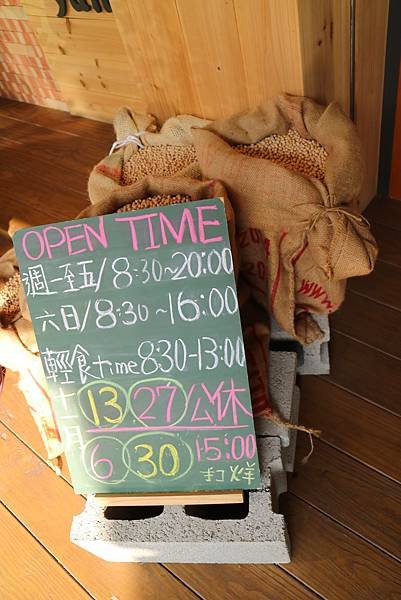 OPEN TIME
週一至五/8:30~20:00
六日/8:30~16:00
輕食time 8:30-13:00
十二月 13. 27 公休
6 30 15:00
打烊